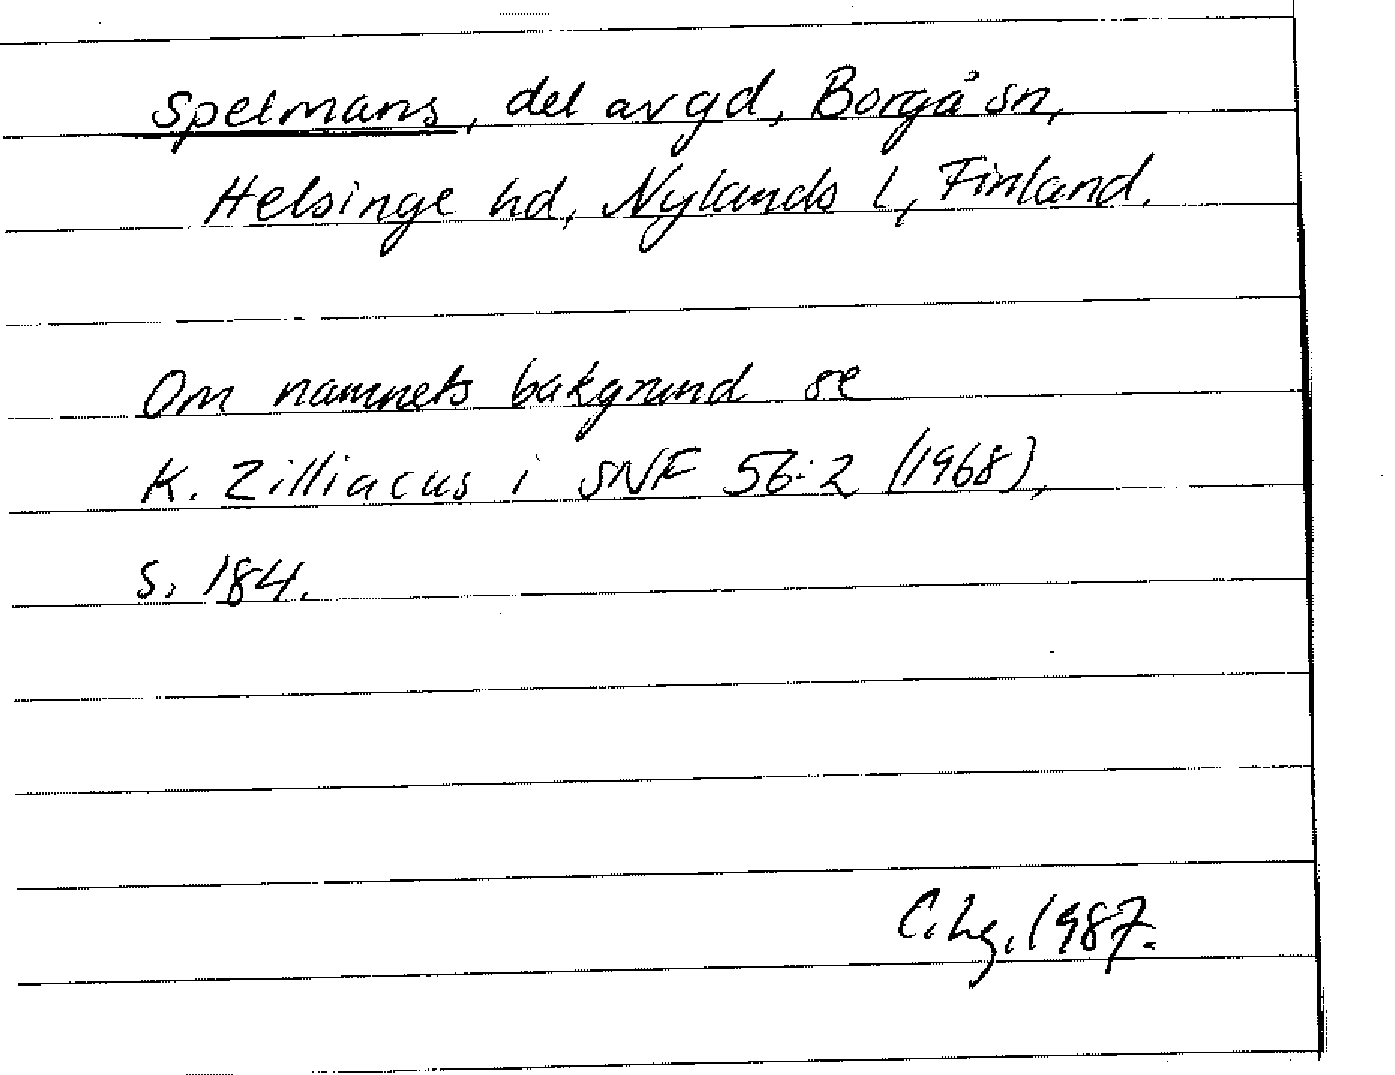 Spelmans, del av gd, Borgå sn,
Helsinge hd, Nylands l, Finland.
Om namnets bakgrund se
K. Zilliacus i SNF 56:2 (1968),
s. 184.
C. Lg. 1987.